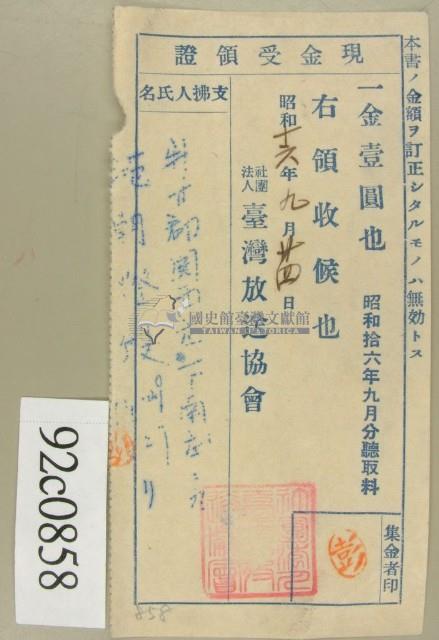 本書ノ金額ヲ訂正シタルモノハ無効トス
現金受領證
一金壹圓也 昭和拾六年九月分聽取料
右領收候也
昭和十六年九月廿四日
社團法人 臺灣放送協會
支拂人氏名
新竹郡關西庄下南片
集金者印
彭
國史館臺灣文獻館
TAIWAN HISTORICA
92c0858
858